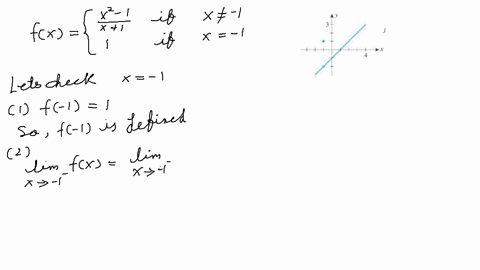 f(x) = { x² - 1 / x + 1 if x ≠ -1
1 if x = -1
Lets check x = -1
(1) f(-1) = 1
So, f(-1) is defined
(2) lim x→-1⁻ f(x) = lim x→-1⁻
y
3
4
x